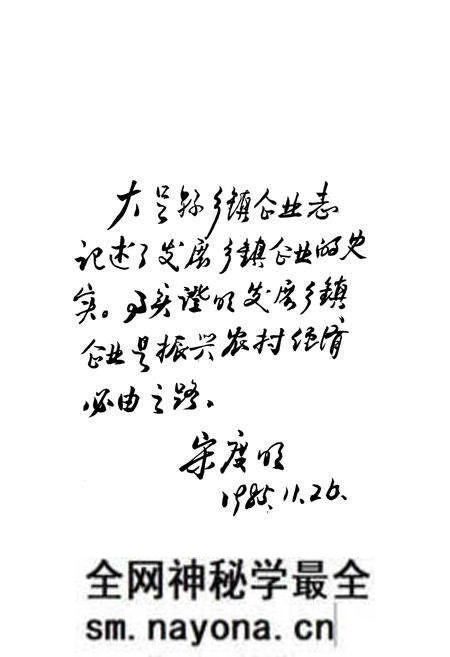 大足县乡镇企业志
记述了发展乡镇企业的史
实。事实证明发展乡镇
企业是振兴农村经济
必由之路。
宋度明
1985.11.26.
全网神秘学最全
sm.nayona.cn